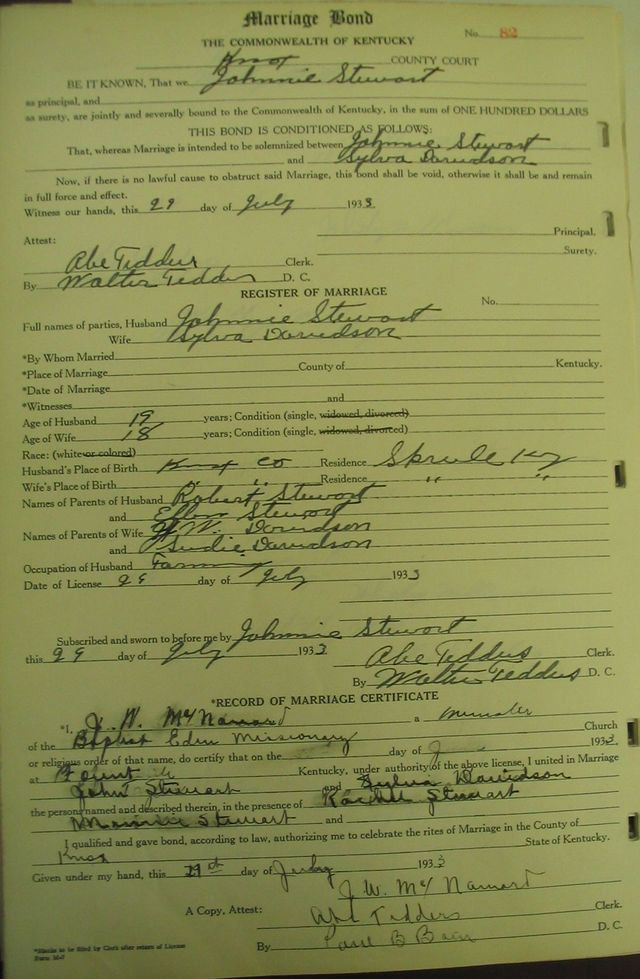 Marriage Bond
THE COMMONWEALTH OF KENTUCKY
No. 82
Knox COUNTY COURT
BE IT KNOWN, That we Johnnie Stewart
as principal, and
as surety, are jointly and severally bound to the Commonwealth of Kentucky, in the sum of ONE HUNDRED DOLLARS
THIS BOND IS CONDITIONED AS FOLLOWS:
That, whereas Marriage is intended to be solemnized between Johnnie Stewart
and Sylva Davidson
Now, if there is no lawful cause to obstruct said Marriage, this bond shall be void, otherwise it shall be and remain
in full force and effect.
Witness our hands, this 29 day of July 1933.
Principal.
Attest:
Surety.
Abe Tedders Clerk.
By Walter Tedders D. C.
REGISTER OF MARRIAGE
No.
Full names of parties, Husband Johnnie Stewart
Wife Sylva Davidson
*By Whom Married
*Place of Marriage County of Kentucky.
*Date of Marriage
*Witnesses and
Age of Husband 19 years; Condition (single, widowed, divorced)
Age of Wife 18 years; Condition (single, widowed, divorced)
Race: (white or colored)
Husband's Place of Birth Knox Co Residence Sprule Ky
Wife's Place of Birth " " Residence " "
Names of Parents of Husband Robert Stewart
and Ellen Stewart
Names of Parents of Wife W. Davidson
and Sudie Davidson
Occupation of Husband Farming
Date of License 29 day of July 1933
Subscribed and sworn to before me by Johnnie Stewart
this 29 day of July 1933 Abe Tedders Clerk.
By Walter Tedders D. C.
*RECORD OF MARRIAGE CERTIFICATE
*I, J. W. McNamard a minister
of the Baptist Eden Missionary Church
or religious order of that name, do certify that on the day of 1933.
at Fount Kentucky, under authority of the above license, I united in Marriage
John Stewart and Sylvia Davidson
the persons named and described therein, in the presence of Rachel Stewart
Minnie Stewart and
I qualified and gave bond, according to law, authorizing me to celebrate the rites of Marriage in the County of
Knox State of Kentucky.
Given under my hand, this 29st day of July 1933
J. W. McNamard
A Copy, Attest: Abe Tedders Clerk.
By D. C.
*Blanks to be filled by Clerk after return of License